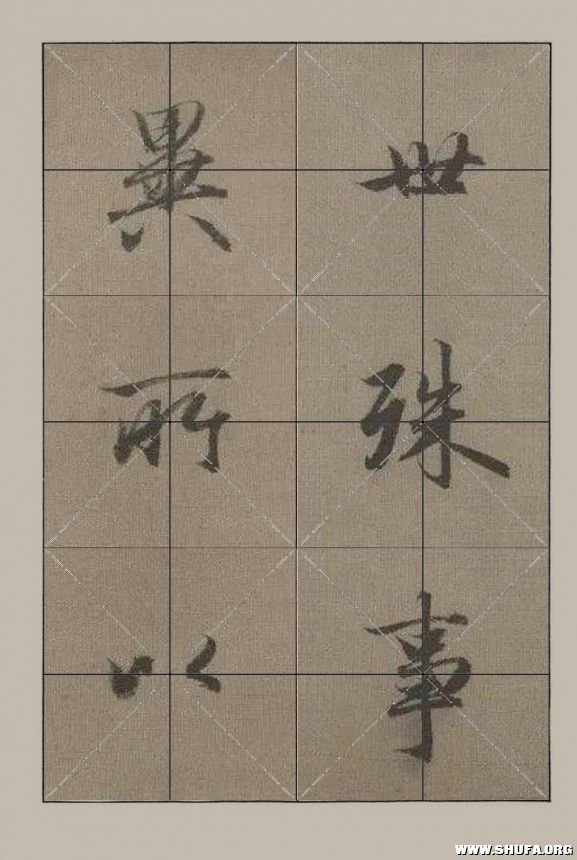 世殊事
異所以
WWW.SHUFA.ORG